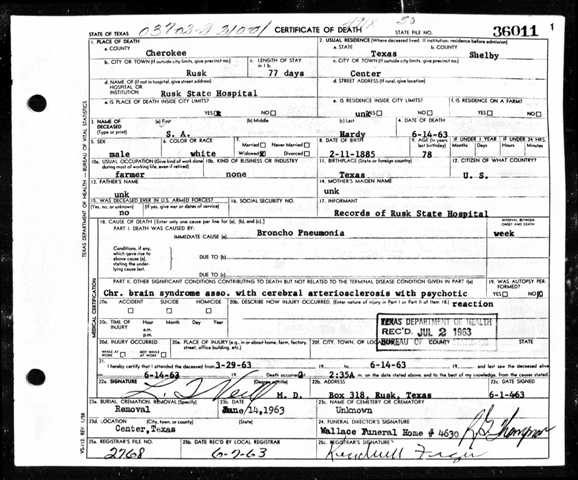 STATE OF TEXAS CERTIFICATE OF DEATH STATE FILE NO. 36011 1
1. PLACE OF DEATH
a. COUNTY
Cherokee
2. USUAL RESIDENCE (Where deceased lived. If institution: residence before admission)
a. STATE b. COUNTY
Texas Shelby
b. CITY OR TOWN (If outside city limits, give precinct no.) c. LENGTH OF STAY in 1 b.
Rusk 77 days
c. CITY OR TOWN (If outside city limits, give precinct no.)
Center
d. NAME OF (If not in hospital, give street address) HOSPITAL OR INSTITUTION
Rusk State Hospital
d. STREET ADDRESS (If rural, give location)
e. IS PLACE OF DEATH INSIDE CITY LIMITS?
YES NO
e. IS RESIDENCE INSIDE CITY LIMITS?
unk YES NO
f. IS RESIDENCE ON A FARM?
YES NO
3. NAME OF DECEASED (Type or print)
(a) First (b) Middle (c) Last
S. A. Hardy
4. DATE OF DEATH
6-14-63
5. SEX
male
6. COLOR OR RACE
white
7. Married Never Married
Widowed Divorced
8. DATE OF BIRTH
2-11-1885
9. AGE (In years last birthday)
78
IF UNDER 1 YEAR
Months Days
IF UNDER 24 HRS.
Hours Min.
10a. USUAL OCCUPATION (Give kind of work done during most of working life, even if retired)
farmer
10b. KIND OF BUSINESS OR INDUSTRY
none
11. BIRTHPLACE (State or foreign country)
Texas
12. CITIZEN OF WHAT COUNTRY?
U. S.
13. FATHER'S NAME
unk
14. MOTHER'S MAIDEN NAME
unk
15. WAS DECEASED EVER IN U.S. ARMED FORCES?
(Yes, no, or unknown) (If yes, give war or dates of service)
no
16. SOCIAL SECURITY NO.
17. INFORMANT
Records of Rusk State Hospital
18. CAUSE OF DEATH [Enter only one cause per line for (a), (b), and (c).]
PART I. DEATH WAS CAUSED BY:
IMMEDIATE CAUSE (a) Broncho Pneumonia
INTERVAL BETWEEN ONSET AND DEATH
week
Conditions, if any, which gave rise to above cause (a), stating the underlying cause last.
DUE TO (b)
DUE TO (c)
PART II. OTHER SIGNIFICANT CONDITIONS CONTRIBUTING TO DEATH BUT NOT RELATED TO THE TERMINAL DISEASE CONDITION GIVEN IN PART I(a)
Chr. brain syndrome asso. with cerebral arteriosclerosis with psychotic
reaction
19. WAS AUTOPSY PERFORMED?
YES NO
20a. ACCIDENT SUICIDE HOMICIDE
20b. DESCRIBE HOW INJURY OCCURRED. (Enter nature of injury in Part I or Part II of item 18.)
20c. TIME OF INJURY
Hour Month Day Year
a.m.
p.m.
TEXAS DEPARTMENT OF HEALTH
REC'D JUL 2 1963
BUREAU OF
20d. INJURY OCCURRED
WHILE AT WORK NOT WHILE AT WORK
20e. PLACE OF INJURY (e.g., in or about home, farm, factory, street, office building, etc.)
20f. CITY, TOWN, OR LOCATION COUNTY
21. I hereby certify that I attended the deceased from 3-29-63 to 6-14-63
6-14-63 Death occurred at 2:35A m. on the date stated above, and to the best of my knowledge, from the causes stated
22a. SIGNATURE (Degree or title)
M. D.
22b. ADDRESS
Box 318, Rusk, Texas
22c. DATE SIGNED
6-1-463
23a. BURIAL, CREMATION, REMOVAL (Specify)
Removal
23b. DATE
June/14,1963
23c. NAME OF CEMETERY OR CREMATORY
Unknown
23d. LOCATION (City, town, or county) (State)
Center,Texas
24. FUNERAL DIRECTOR'S SIGNATURE
Wallace Funeral Home # 4630
25a. REGISTRAR'S FILE NO.
2768
25b. DATE REC'D BY LOCAL REGISTRAR
25c. REGISTRAR'S SIGNATURE
TEXAS DEPARTMENT OF HEALTH — BUREAU OF VITAL STATISTICS
MEDICAL CERTIFICATION
VS-112 REV. 1/58